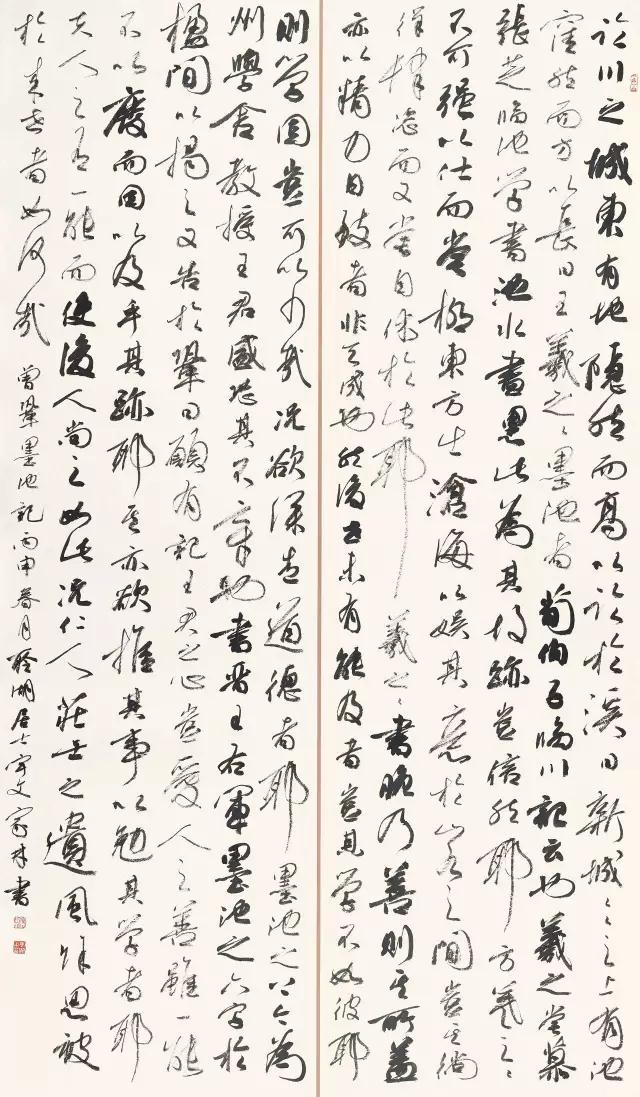 臨川之城東有地隱然而高以臨於溪曰新城々之上有池
窪然而方以長曰王羲之々墨池者荀伯子臨川記云也羲之嘗慕
張芝臨池學書池水盡黑此為其故跡豈信然耶方羲之々
不可强以仕而嘗極東方出滄海以娱其意於山水之間豈其徜
徉肆恣而又嘗自休於此耶羲之々書晚乃善則其所蓋
亦以精力自致者非天成也然後世未有能及者豈其學不如彼耶
則學固豈可以少哉况欲深造道德者耶墨池之上今為
州學舍教授王君盛恐其不章也書晋王右軍墨池之六字於
楹間以揭之又告於鞏曰願有記王君之心豈愛人之善雖一能
不以廢而因以及乎其跡耶其亦欲推其事以勉其學者耶
夫人之有一能而使後人尚之如此况仁人莊士之遺風餘思被
於来世者如何哉 曾鞏墨池記丙申春月湖居士宇文家林書